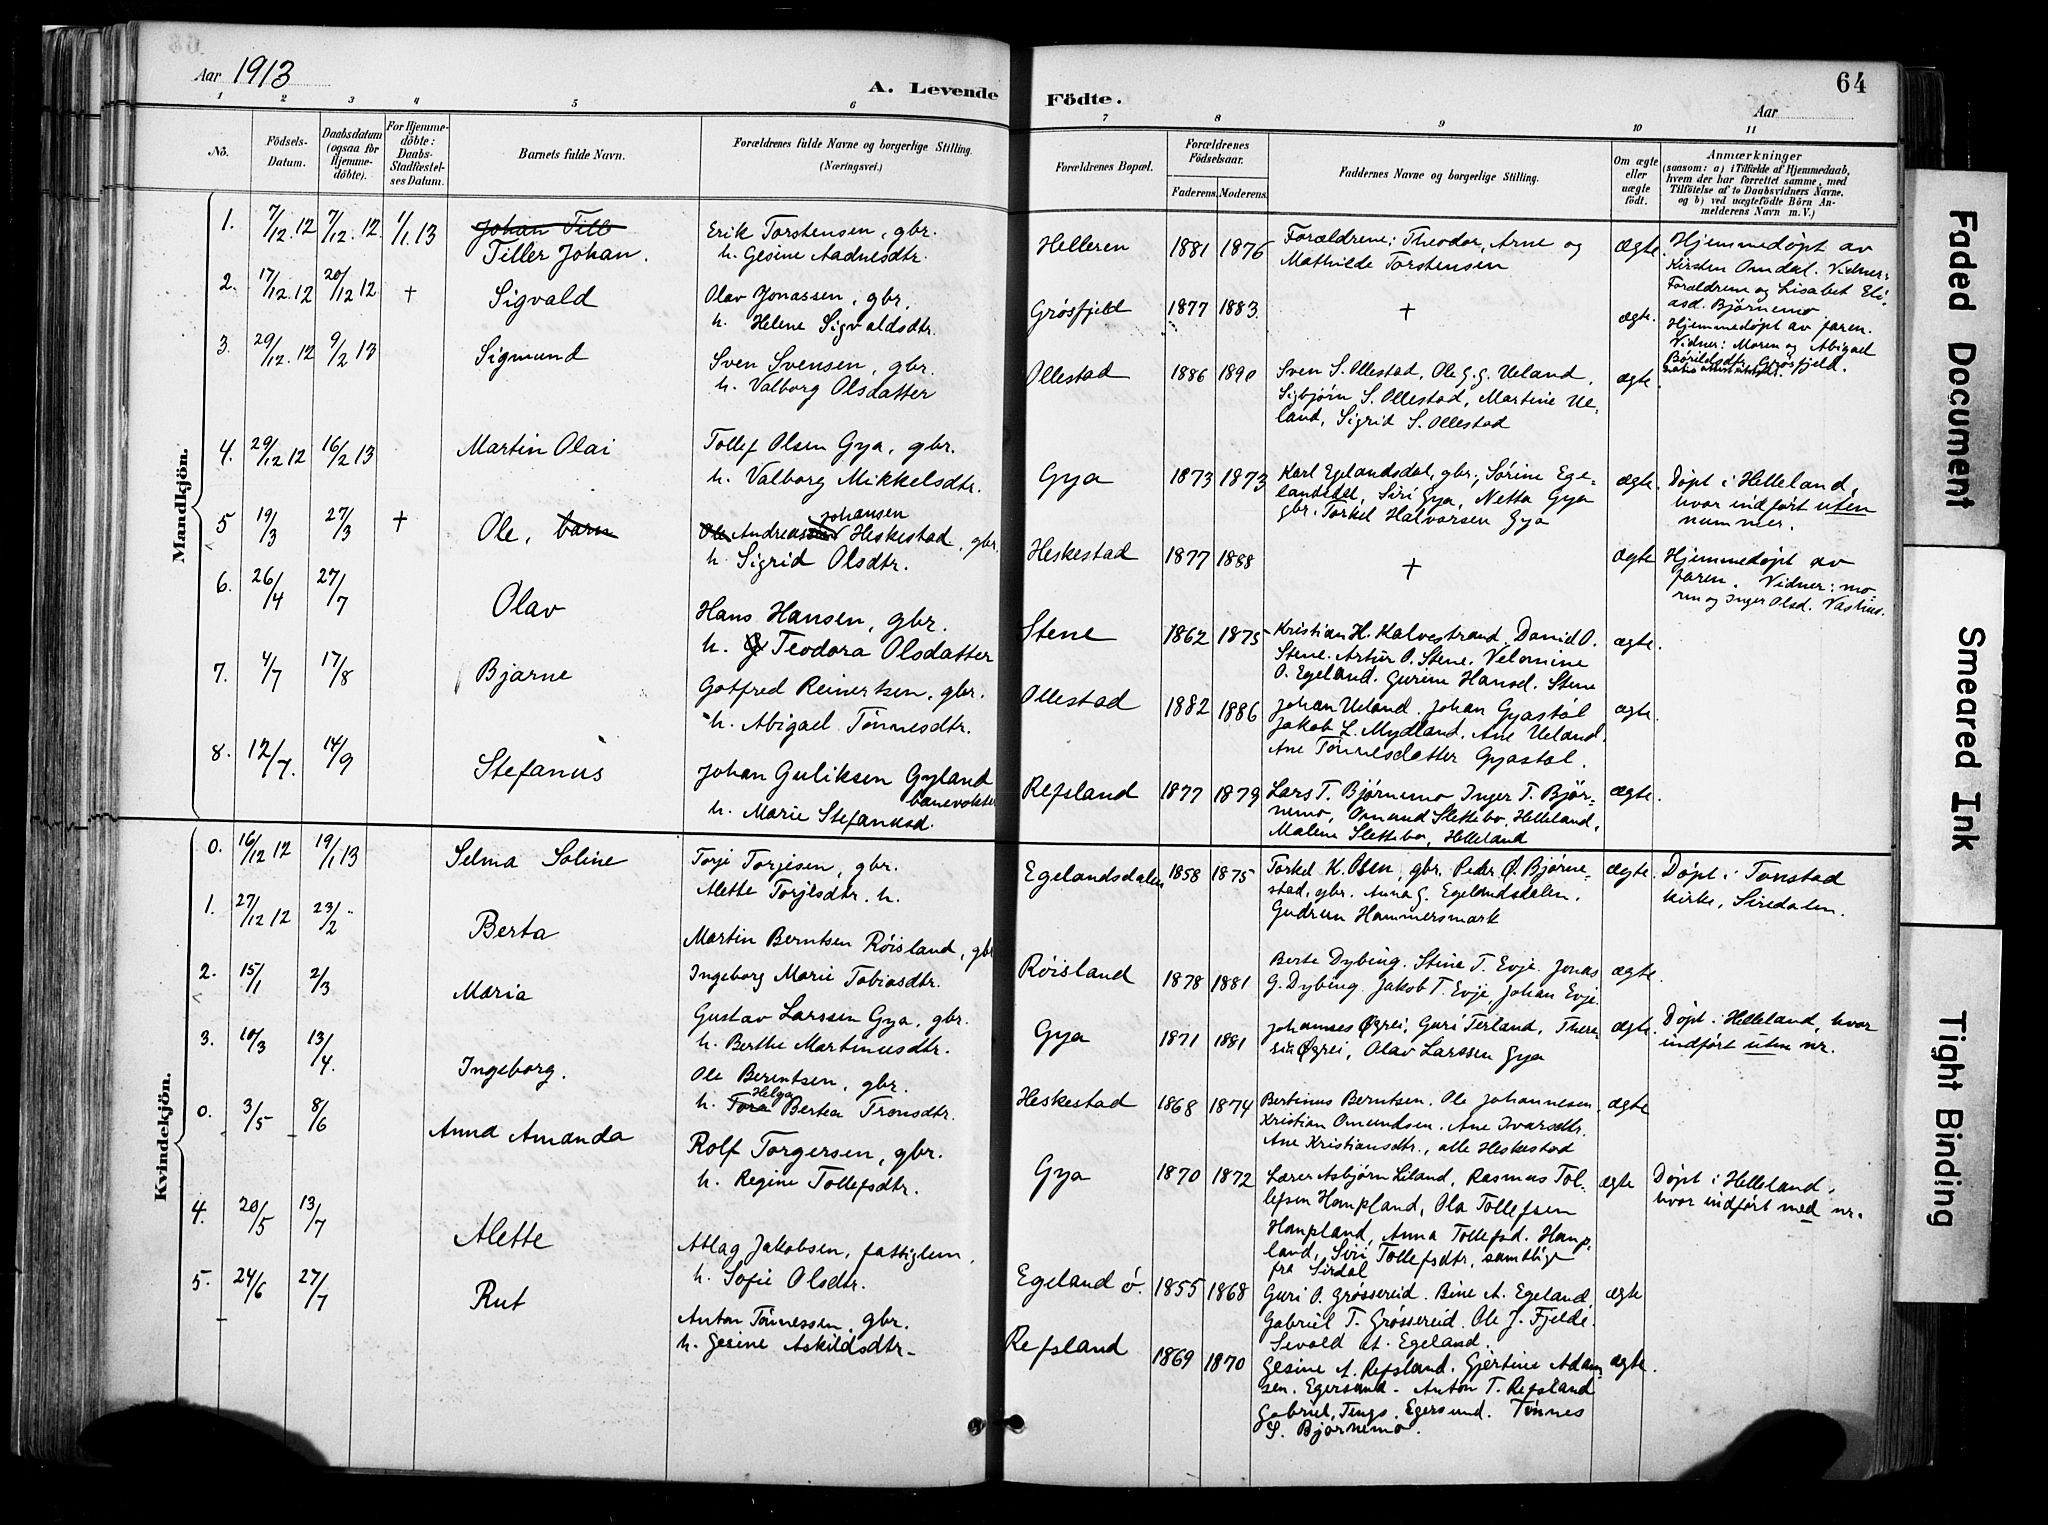 Aar 1913
A. Levende Födte.
64
Aar
1 2 3 4 5 6 7 8 9 10 11
No.
Födsels-Datum.
Daabsdatum (ogsaa for Hjemme-döbte).
For Hjemme-döbte: Daabs-Stadfæstel-ses Datum.
Barnets fulde Navn.
Forældrenes fulde Navne og borgerlige Stilling.
(Næringsvei.)
Forældrenes Bopæl.
Forældrenes Födselsaar.
Faderens. Moderens.
Faddernes Navne og borgerlige Stilling.
Om ægte eller uægte födt.
Anmærkninger
(saasom: a) i Tilfælde af Hjemmedaab,
hvem der har forrettet samme, med
Tilföielse af to Daabsvidners Navne.
og b) ved uægtefödte Börn An-
melderens Navn m. V.)
Mandkjön.
1. 7/12.12 7/12.12 1/1.13 Johan Till
Tiller Johan.
Erik Torstensen, gbr.
h. Gesine Aadnesdtr.
Helleren 1881 1876
Forældrene; Theodor, Arne og
Mathilde Torstensen
ægte.
Hjemmedøpt av
Kirsten Omdal. Vidner:
Forældrene og Lisabet Eli-
asd. Bjørnemo
2. 17/12.12 20/12 12 + Sigvald
Olav Jonassen, gbr.
h. Helene Sigvaldsdtr.
Grøsfjeld 1877 1883. + ægte.
Hjemmedøpt av faren.
Vidner: Moren og Abigael
Grøsfjeld.
3. 29/12.12 9/2 13 Sigmund
Sven Svensen, gbr.
h. Valborg Olsdatter
Ollestad 1886 1890
Sven S. Ollestad, Ole G. G. Ueland,
Sigbjørn S. Ollestad, Martine Ue-
land, Sigrid S. Ollestad
ægte.
4. 29/12 12 16/2 13 Martin Olai
Tollef Olsen Gya, gbr.
h. Valborg Mikkelsdtr.
Gya 1873 1873
Karl Egelandsdal, gbr., Sørine Ege-
landsdal, Siri Gya, Netta Gya
gbr. Torkel Halvorsen Gya
ægte.
Døpt i Helleland,
hvor indført uten
nummer.
5 19/3 27/3 + Ole, barn
Johansen
Ole Andreassen Heskestad, gbr.
h. Sigrid Olsdtr.
Heskestad 1877 1888 + ægte
Hjemmedøpt av
faren. Vidner: mo-
ren og Inger Olsd. Vashus.
6. 26/4 27/7 Olav
Hans Hansen, gbr.
h. Teodora Olsdatter
Stene 1862 1875
Kristian H. Kalvestrand, David O.
Stene. Artur O. Stene. Velomine
O. Egeland. Gurine Hansd. Stene
ægte.
7. 4/7 17/8 Bjarne
Gotfred Reinertsen, gbr.
h. Abigael Tønnesdtr.
Ollestad 1882 1886
Johan Ueland. Johan Gyastøl
Jakob L. Mydland. Ane Ueland.
Ane Tønnesdatter Gyastøl.
ægte.
8. 12/7. 14/9 Stefanus
Johan Guliksen Gyland
banevokter
h. Marie Stefanusd.
Refsland 1877 1879
Lars T. Bjørnemo Inger T. Bjør-
nemo, Omund Slettebo, Helleland,
Malene Slettebo, Helleland
ægte.
Kvindekjön.
0. 16/12 12 19/1 13 Selma Soline
Torje Torjesen, gbr.
Alette Torjesdtr. h.
Egelandsdalen 1858 1875
Torkel K. Osen, gbr. Peder Ø. Bjørne-
stad, gbr. Anna G. Egelandsdalen,
Gudrun Hammersmark
ægte.
Døpt i Tonstad
kirke, Siredalen.
1. 27/12 12 23/2 Berta
Martin Berntsen Røisland, gbr
Ingeborg Marie Tobiasdtr.
Røisland 1878 1881
Berte Dybing. Stine T. Evje. Jonas
G. Dybing. Jakob T. Evje, Johan Evje.
ægte.
2. 15/1 2/3 Maria
Gustav Larssen Gya, gbr.
h. Berthe Martinusdtr.
Gya 1871 1881
Johannes Øgrei, Guri Terland, There-
sie Øgrei, Olav Larssen Gya
ægte.
Døpt i Helleland, hvor
indført uten nr.
3. 10/3 13/4. Ingeborg.
Ole Berentsen, gbr.
Helga
h. Tora Bertea Tronsdtr.
Heskestad 1868 1874
Bertinus Berntsen. Ole Johannesen.
Kristian Omundsen. Ane Ivarsdtr.
Ane Kristiansdtr., alle Heskestad
ægte
0. 3/5 8/6 Anna Amanda
Rolf Torgersen, gbr.
h. Regine Tollefsdtr.
Gya 1870 1872
Lærer Asbjørn Liland, Rasmus Tol-
lefsen Hompland, Ola Tollefsen
Hompland, Anna Tollefsd. Homp-
land, Siri Tollefsdtr, samtlige
fra Sirdal
ægte
Døpt i Helleland,
hvor indført med nr.
4. 20/5 13/7 Alette
Atlag Jakobsen, fattiglem,
h. Sofie Olsdtr.
Egeland ø. 1855 1868
Guri O. Grøssereid. Bine A. Egeland.
Gabriel T. Grøssereid. Ole J. Fjelde.
Sevald At. Egeland.
ægte
5. 24/6 27/7 Rut
Anton Tønnessen, gbr.
h. Gesine Askildsdtr.
Refsland 1869 1870
Gesine A. Refsland. Gjertine Adam-
sen. Egersund. Anton T. Refsland
Gabriel Tengs. Egersund. Tønnes
S. Bjørnemo.
ægte.
Faded Document
Smeared Ink
Tight Binding